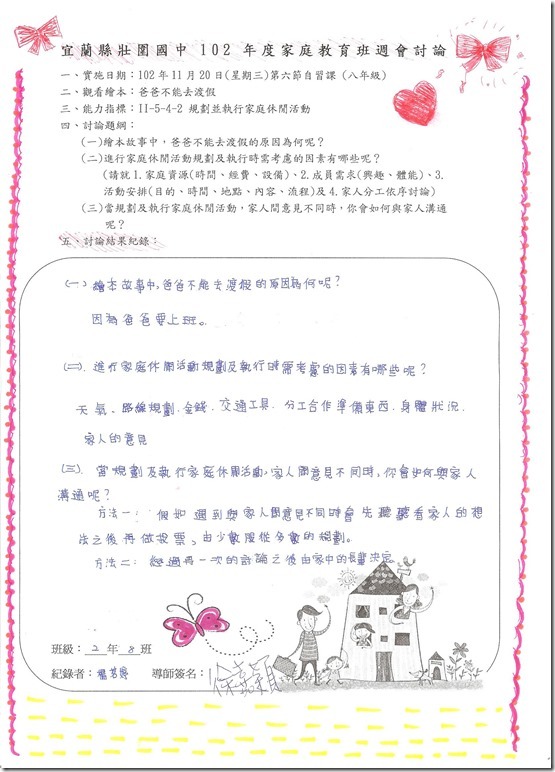 宜蘭縣壯圍國中 102 年度家庭教育班週會討論
一、實施日期：102年11月20日(星期三)第六節自習課 (八年級)
二、觀看繪本：爸爸不能去渡假
三、能力指標：II-5-4-2 規劃並執行家庭休閒活動
四、討論題綱：
(一)繪本故事中，爸爸不能去渡假的原因為何呢？
(二)進行家庭休閒活動規劃及執行時需考慮的因素有哪些呢？
(請就1.家庭資源(時間、經費、設備)、2.成員需求(興趣、體能)、3.
活動安排(目的、時間、地點、內容、流程)及4.家人分工依序討論)
(三)當規劃及執行家庭休閒活動，家人間意見不同時，你會如何與家人溝通
呢？
五、討論結果紀錄：
(一) 繪本故事中,爸爸不能去渡假的原因為何呢？
因為爸爸要上班。
(二). 進行家庭休閒活動規劃及執行時需考慮的因素有哪些呢？
天氣、路線規劃、金錢、交通工具、分工合作準備東西、身體狀況、
家人的意見
(三). 當規劃及執行家庭休閒活動,家人間意見不同時,你會如何與家人
溝通呢？
方法一： 假如遇到與家人間意見不同時會先聽聽看家人的想
法之後再做投票、由少數服從多數的規劃。
方法二： 經過再一次的討論之後由家中的長輩決定
班級：2 年 8 班
紀錄者： 導師簽名：